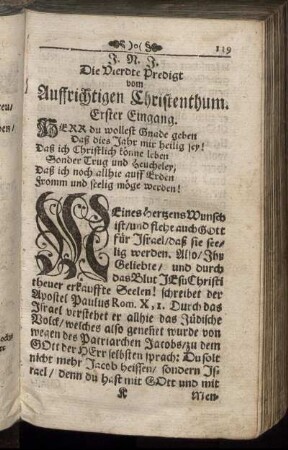 )o( 119
J. N. J.
Die Vierdte Predigt
vom
Auffrichtigen Christenthum.
Erster Eingang.
HERR du wollest Gnade geben
Daß dies Jahr mir heilig sey!
Daß ich Christlich könne leben
Sonder Trug und Heucheley,
Daß ich noch allhie auff Erden
Fromm und seelig möge werden!
MEines hertzens Wunsch
ist/ und flehe auch Gott
für Israel/ daß sie see-
lig werden. Also/ Ihr
Geliebte/ und durch
das Blut JEsu Christi
theuer erkauffte Seelen! schreibet der
Apostel Paulus Rom. X, 1. Durch das
Israel verstehet er allhie das Jüdische
Volck/ welches also genennt wurde von
wegen des Patriarchen Jacobs/ zu dem
GOtt der HErr selbsten sprach: Du solt
nicht mehr Jacob heissen/ sondern Is-
rael/ denn du hast mit GOtt und mit
K Men-